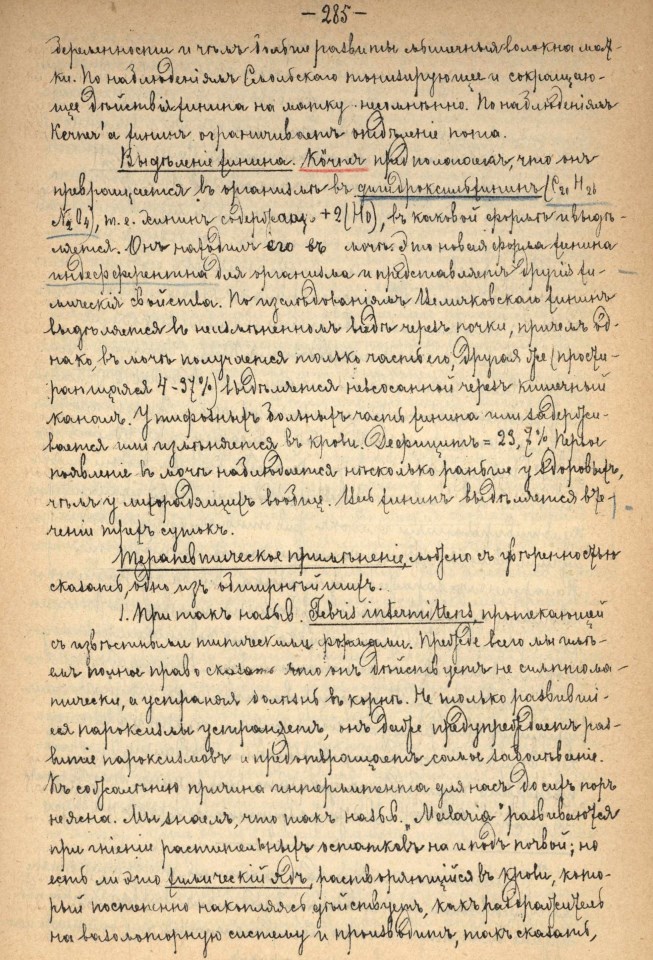 — 285 —
беременности и чѣмъ больше развиты мышечныя волокна мат-
ки. По наблюденіямъ Смольскаго тонизирующее и сокращаю-
щее дѣйствія хинина на матку несомнѣнно. По наблюденіямъ
Кернер'а хининъ ограничиваетъ отдѣленіе пота.
Выдѣленіе хинина. Кернеръ предполагаетъ, что онъ
превращается въ организмѣ въ дигидроксилхининъ (C20 H26
N2 O4), т. е. хининъ содержащ. + 2(HO), въ каковой формѣ и выдѣ-
ляется. Онъ находилъ его въ мочѣ. Эта новая форма хинина
индефферентна для организма и представляетъ другія хи-
мическія свойства. По изслѣдованіямъ хининъ
выдѣляется въ неизмѣненномъ видѣ черезъ почки, причемъ од-
нако, въ мочѣ получается только часть его, другая же (прости-
рающаяся 4-37%) выдѣляется невсосанной черезъ кишечный
каналъ. У тифозныхъ больныхъ часть хинина или задержи-
вается или измѣняется въ крови. Дефицитъ = 23,7%
появленіе въ мочѣ наблюдается нѣсколько раньше у здоровыхъ,
чѣмъ у лихорадящихъ вообще. Весь хининъ выдѣляется въ те-
ченіи трехъ сутокъ.
Терапевтическое примѣненіе, можно съ увѣренностью
сказать, одно изъ обширнѣйшихъ.
1. При такъ назыв. Febris intermittens, протекающей
съ извѣстными типическими формами. Прежде всего мы имѣ-
емъ полное право сказать что онъ дѣйствуетъ не симптома-
тически, а устраняя болѣзнь въ корнѣ. Не только развивші-
еся пароксизмы устраняетъ, онъ даже предупреждаетъ раз-
витіе пароксизмовъ и предотвращаетъ самое заболѣваніе.
Къ сожалѣнію причина интермиттента для насъ до сихъ поръ
неясна. Мы знаемъ, что такъ назыв. „Malaria" развиваются
при гніеніи растительныхъ остатковъ на и подъ почвой; но
есть ли это химическій ядъ, растворяющійся въ крови, кото-
рый постепенно накопляясь дѣйствуетъ, какъ раздражитель
на вазомоторную систему и производитъ, такъ сказать,